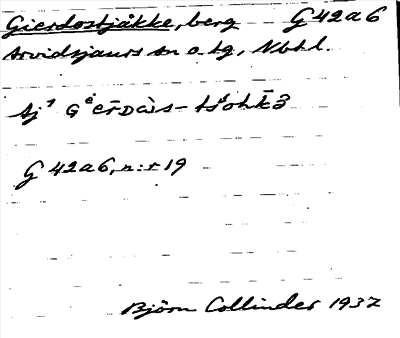 Gierdostjåkke, berg G 42 a 6
Arvidsjaurs sn o. tg, Nbtl.
G 42 a 6, n:r 19
Björn Collinder 1937